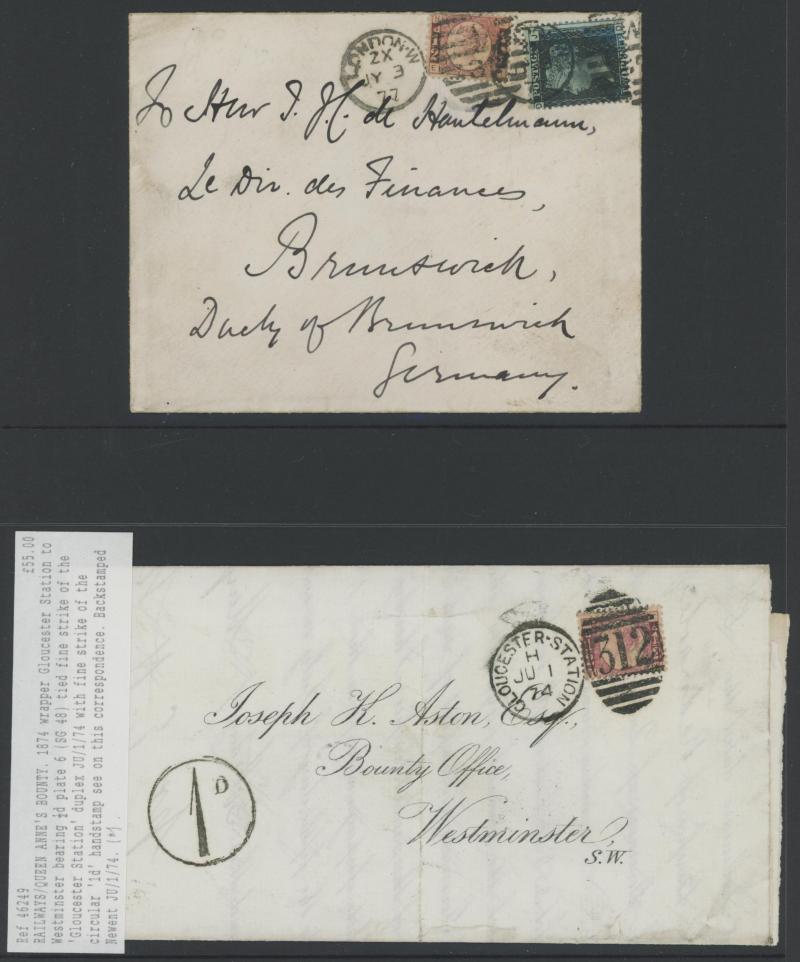 LONDON·W
ZX
JY 3
77
To Herr J. H. de Hantelmann,
Le Dir. des Finances,
Brunswick,
Duchy of Brunswick
Germany.
GLOUCESTER-STATION
H
JU 1
74
312
Joseph K. Aston, Esq.,
Bounty Office,
Westminster,
S.W.
1 D
Ref 46249 £55.00
RAILWAYS/QUEEN ANNE'S BOUNTY. 1874 wrapper Gloucester Station to
Westminster bearing ½d plate 6 (SG 48) tied fine strike of the
'Gloucester Station' duplex JU/1/74 with fine strike of the
circular '1d' handstamp see on this correspondence. Backstamped
Newent JU/1/74. (*).